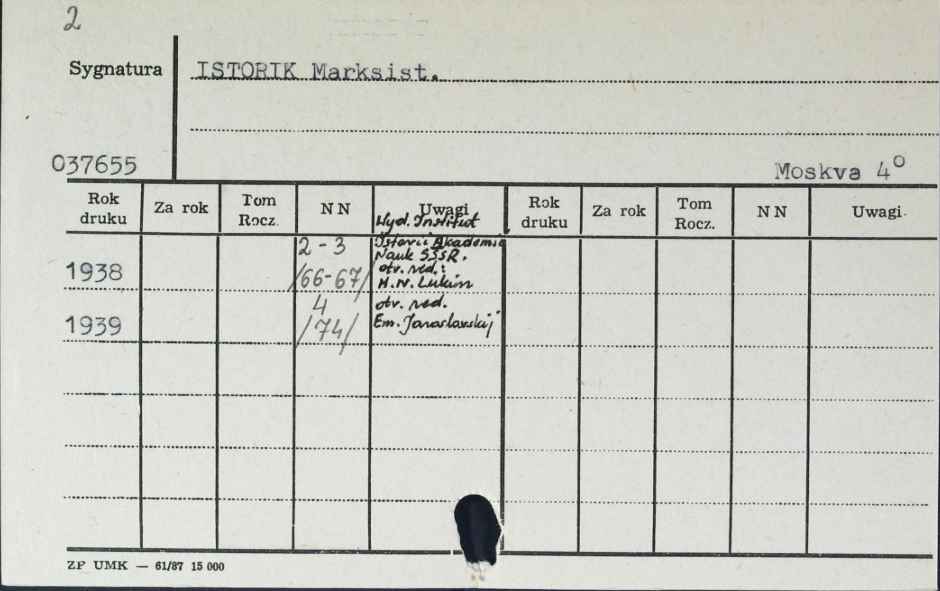 2
Sygnatura ISTORIK Marksist.
037655 Moskva 4°
Rok druku Za rok Tom Rocz. NN Uwagi Rok druku Za rok Tom Rocz. NN Uwagi
Wyd. Institut
2-3 Istorii Akademii
Nauk SSSR.
1938 /66-67/ otv. red.:
N.N. Lukin
4 otv. red.
1939 /74/ Em. Jaroslavskij
ZP UMK — 61/87 15 000